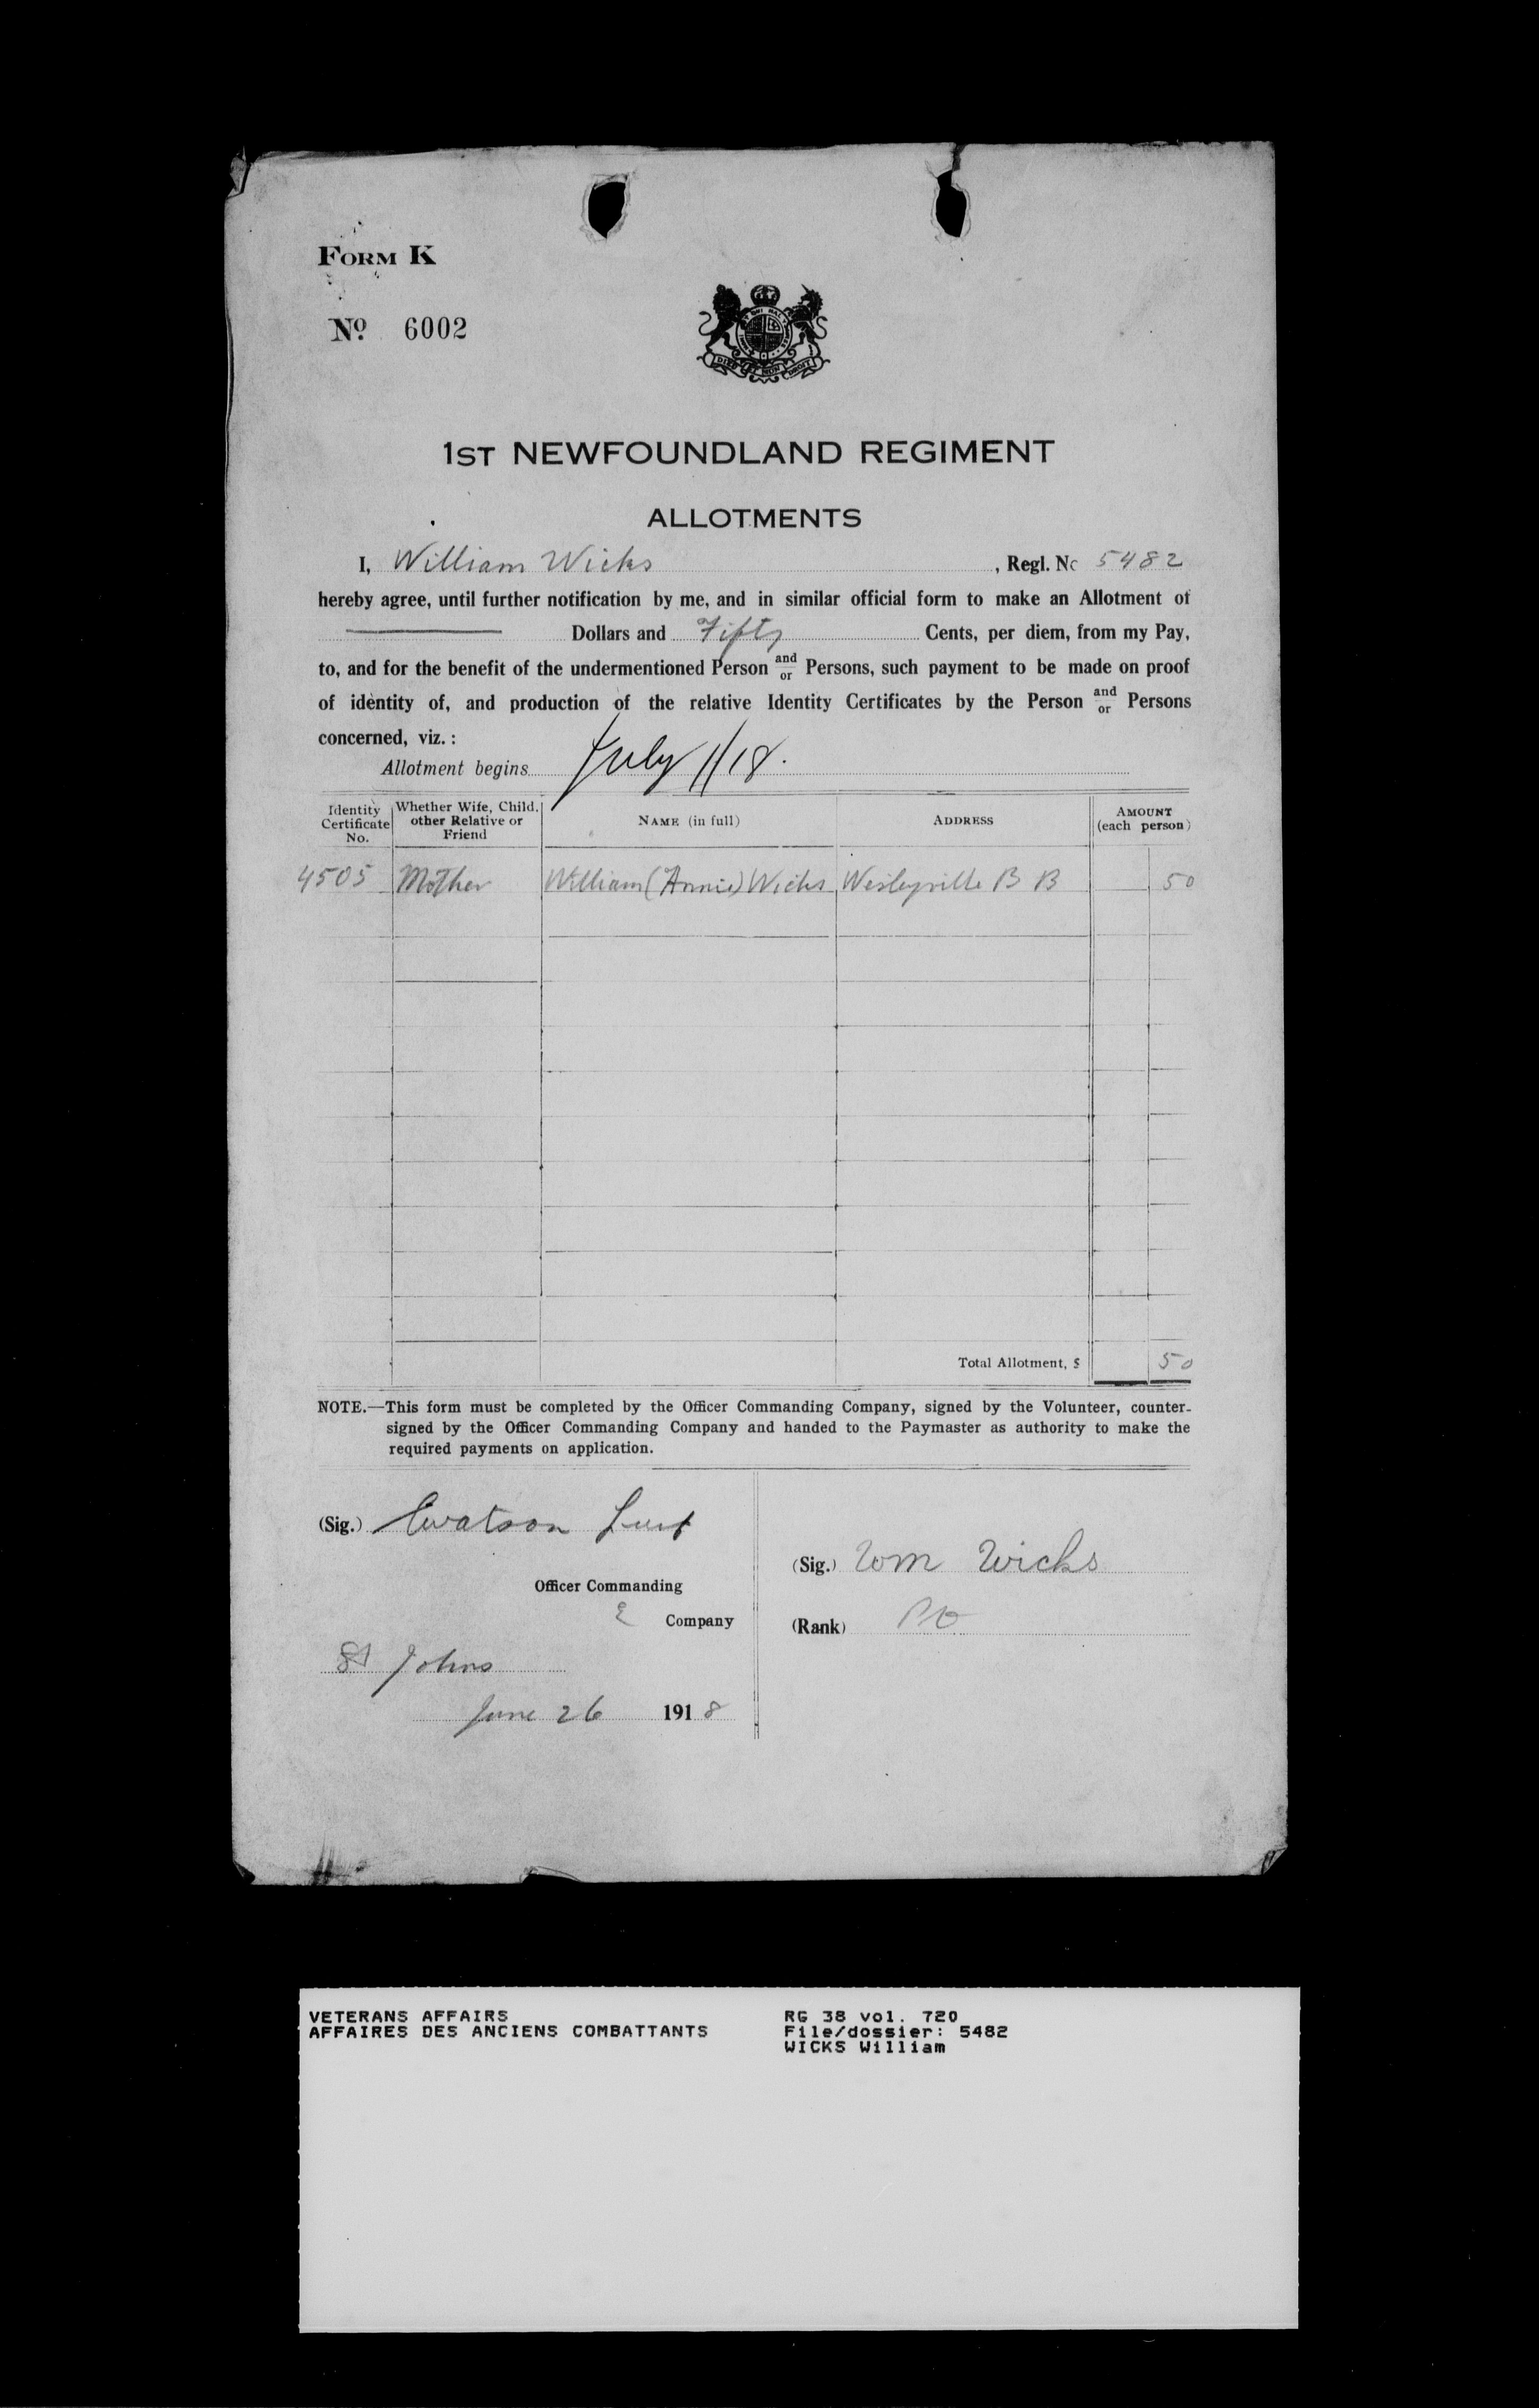 FORM K
No. 6002
DIEU ET MON DROIT
1ST NEWFOUNDLAND REGIMENT
ALLOTMENTS
I, William Wicks, Regl. No 5482
hereby agree, until further notification by me, and in similar official form to make an Allotment of
Dollars and Fifty Cents, per diem, from my Pay,
to, and for the benefit of the undermentioned Person and/or Persons, such payment to be made on proof
of identity of, and production of the relative Identity Certificates by the Person and/or Persons
concerned, viz.:
Allotment begins July 1/18.
Identity Certificate No. Whether Wife, Child, other Relative or Friend NAME (in full) ADDRESS AMOUNT (each person)
4505 Mother William (Annie) Wicks Wesleyville B B 50
Total Allotment, $ 50
NOTE.—This form must be completed by the Officer Commanding Company, signed by the Volunteer, counter-
signed by the Officer Commanding Company and handed to the Paymaster as authority to make the
required payments on application.
(Sig.) Watson
Officer Commanding
E Company
St Johns
June 26 1918
(Sig.) Wm Wicks
(Rank)
VETERANS AFFAIRS
AFFAIRES DES ANCIENS COMBATTANTS
RG 38 vol. 720
File/dossier: 5482
WICKS William